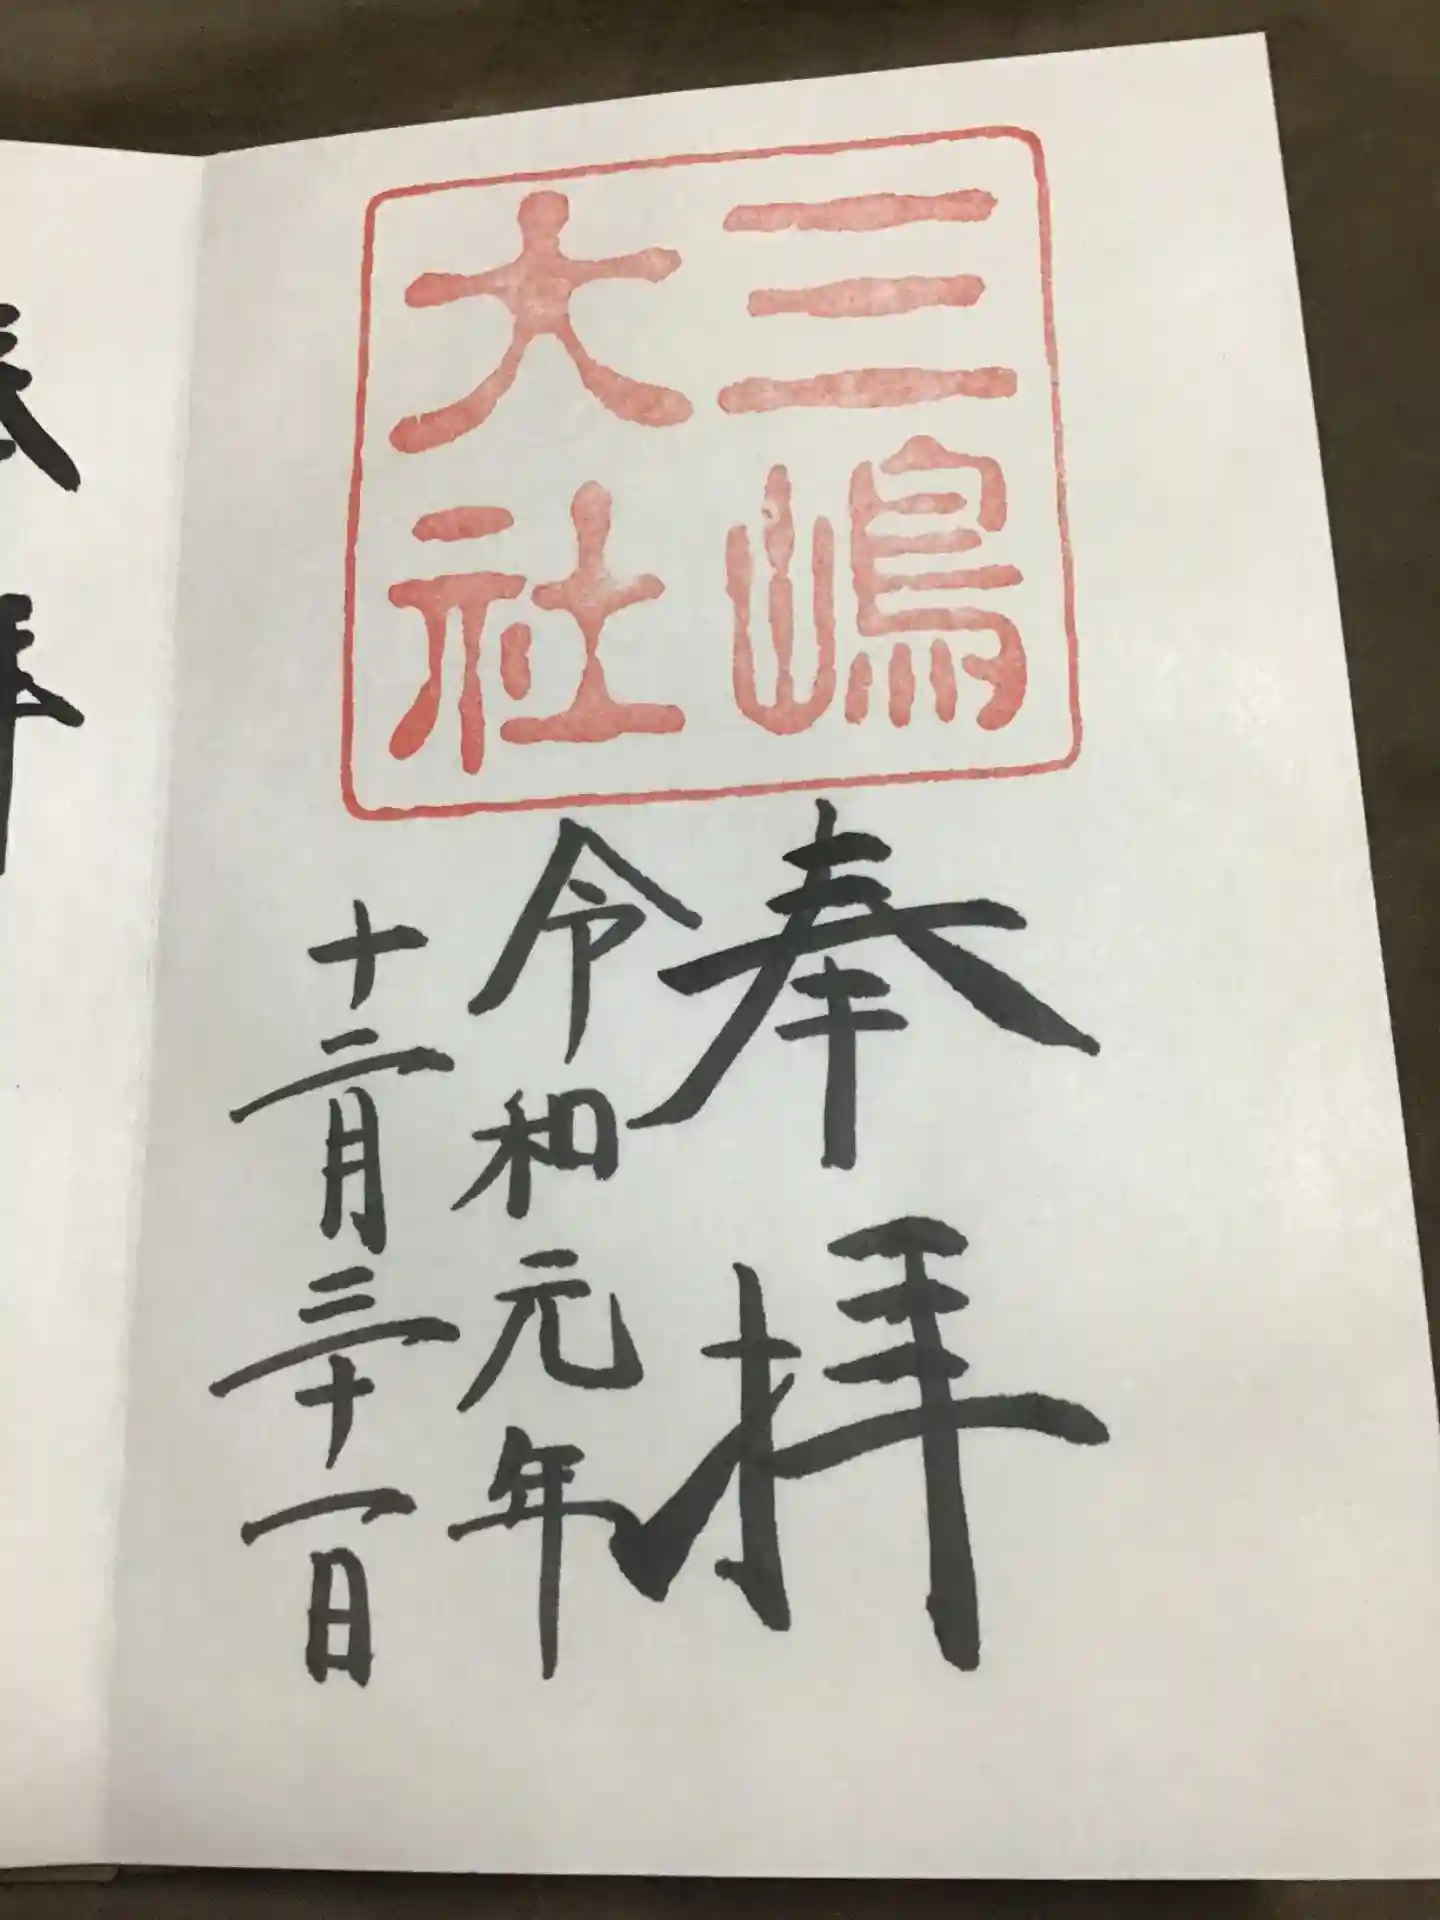 三嶋
大社
奉拝
令和元年
十二月三十一日